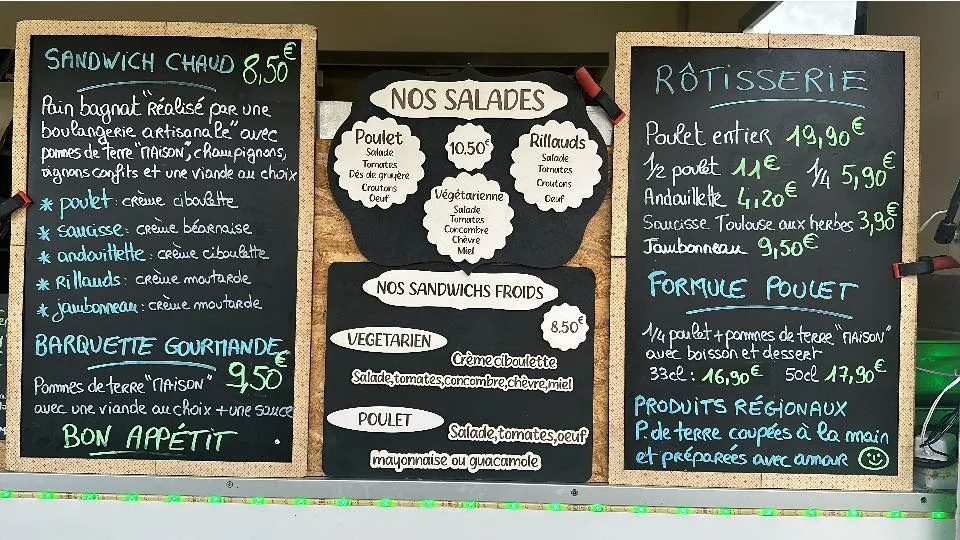 SANDWICH CHAUD 8,50€
Pain bagnat "Réalisé par une
boulangerie artisanale" avec
pommes de terre "MAISON", champignons,
oignons confits et une viande au choix
* poulet : crème ciboulette
* saucisse : crème béarnaise
* andouillette : crème ciboulette
* Rillauds : crème moutarde
* jambonneau : crème moutarde
BARQUETTE GOURMANDE
Pommes de terre "MAISON" 9,50€
avec une viande au choix + une sauce
BON APPÉTIT
NOS SALADES
Poulet
Salade
Tomates
Dés de gruyère
Croutons
Oeuf
10.50€
Rillauds
Salade
Tomates
Croutons
Oeuf
Végétarienne
Salade
Tomates
Concombre
Chèvre
Miel
NOS SANDWICHS FROIDS
8.50€
VEGETARIEN
Crème ciboulette
Salade,tomates,concombre,chèvre,miel
POULET
Salade,tomates,oeuf
mayonnaise ou guacamole
RÔTISSERIE
Poulet entier 19,90€
1/2 poulet 11€ 1/4 5,90€
Andouillette 4,20€
Saucisse Toulouse aux herbes 3,90€
Jambonneau 9,50€
FORMULE POULET
1/4 poulet + pommes de terre "MAISON"
avec boisson et dessert
33cl : 16,90€ 50cl 17,90€
PRODUITS RÉGIONAUX
P. de terre coupées à la main
et préparées avec amour